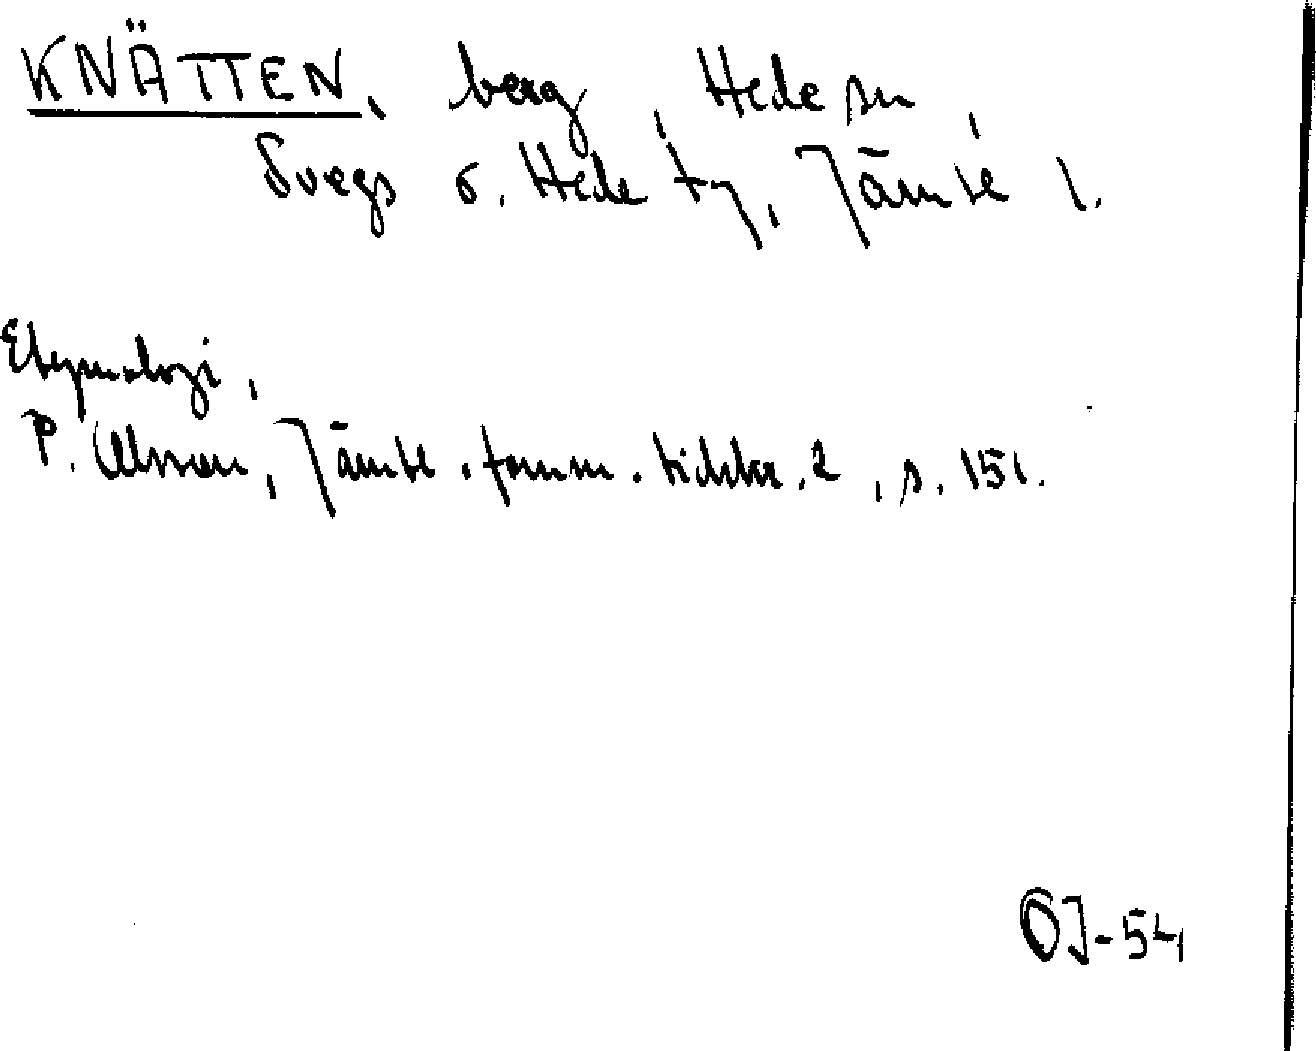 KNÄTTEN, berg, Hede sn,
Svegs o. Hede tg, Jämtl l.
Etymologi,
P. Olsson, Jämtl. fornm. tidskr. 2, s. 151.
OJ-54